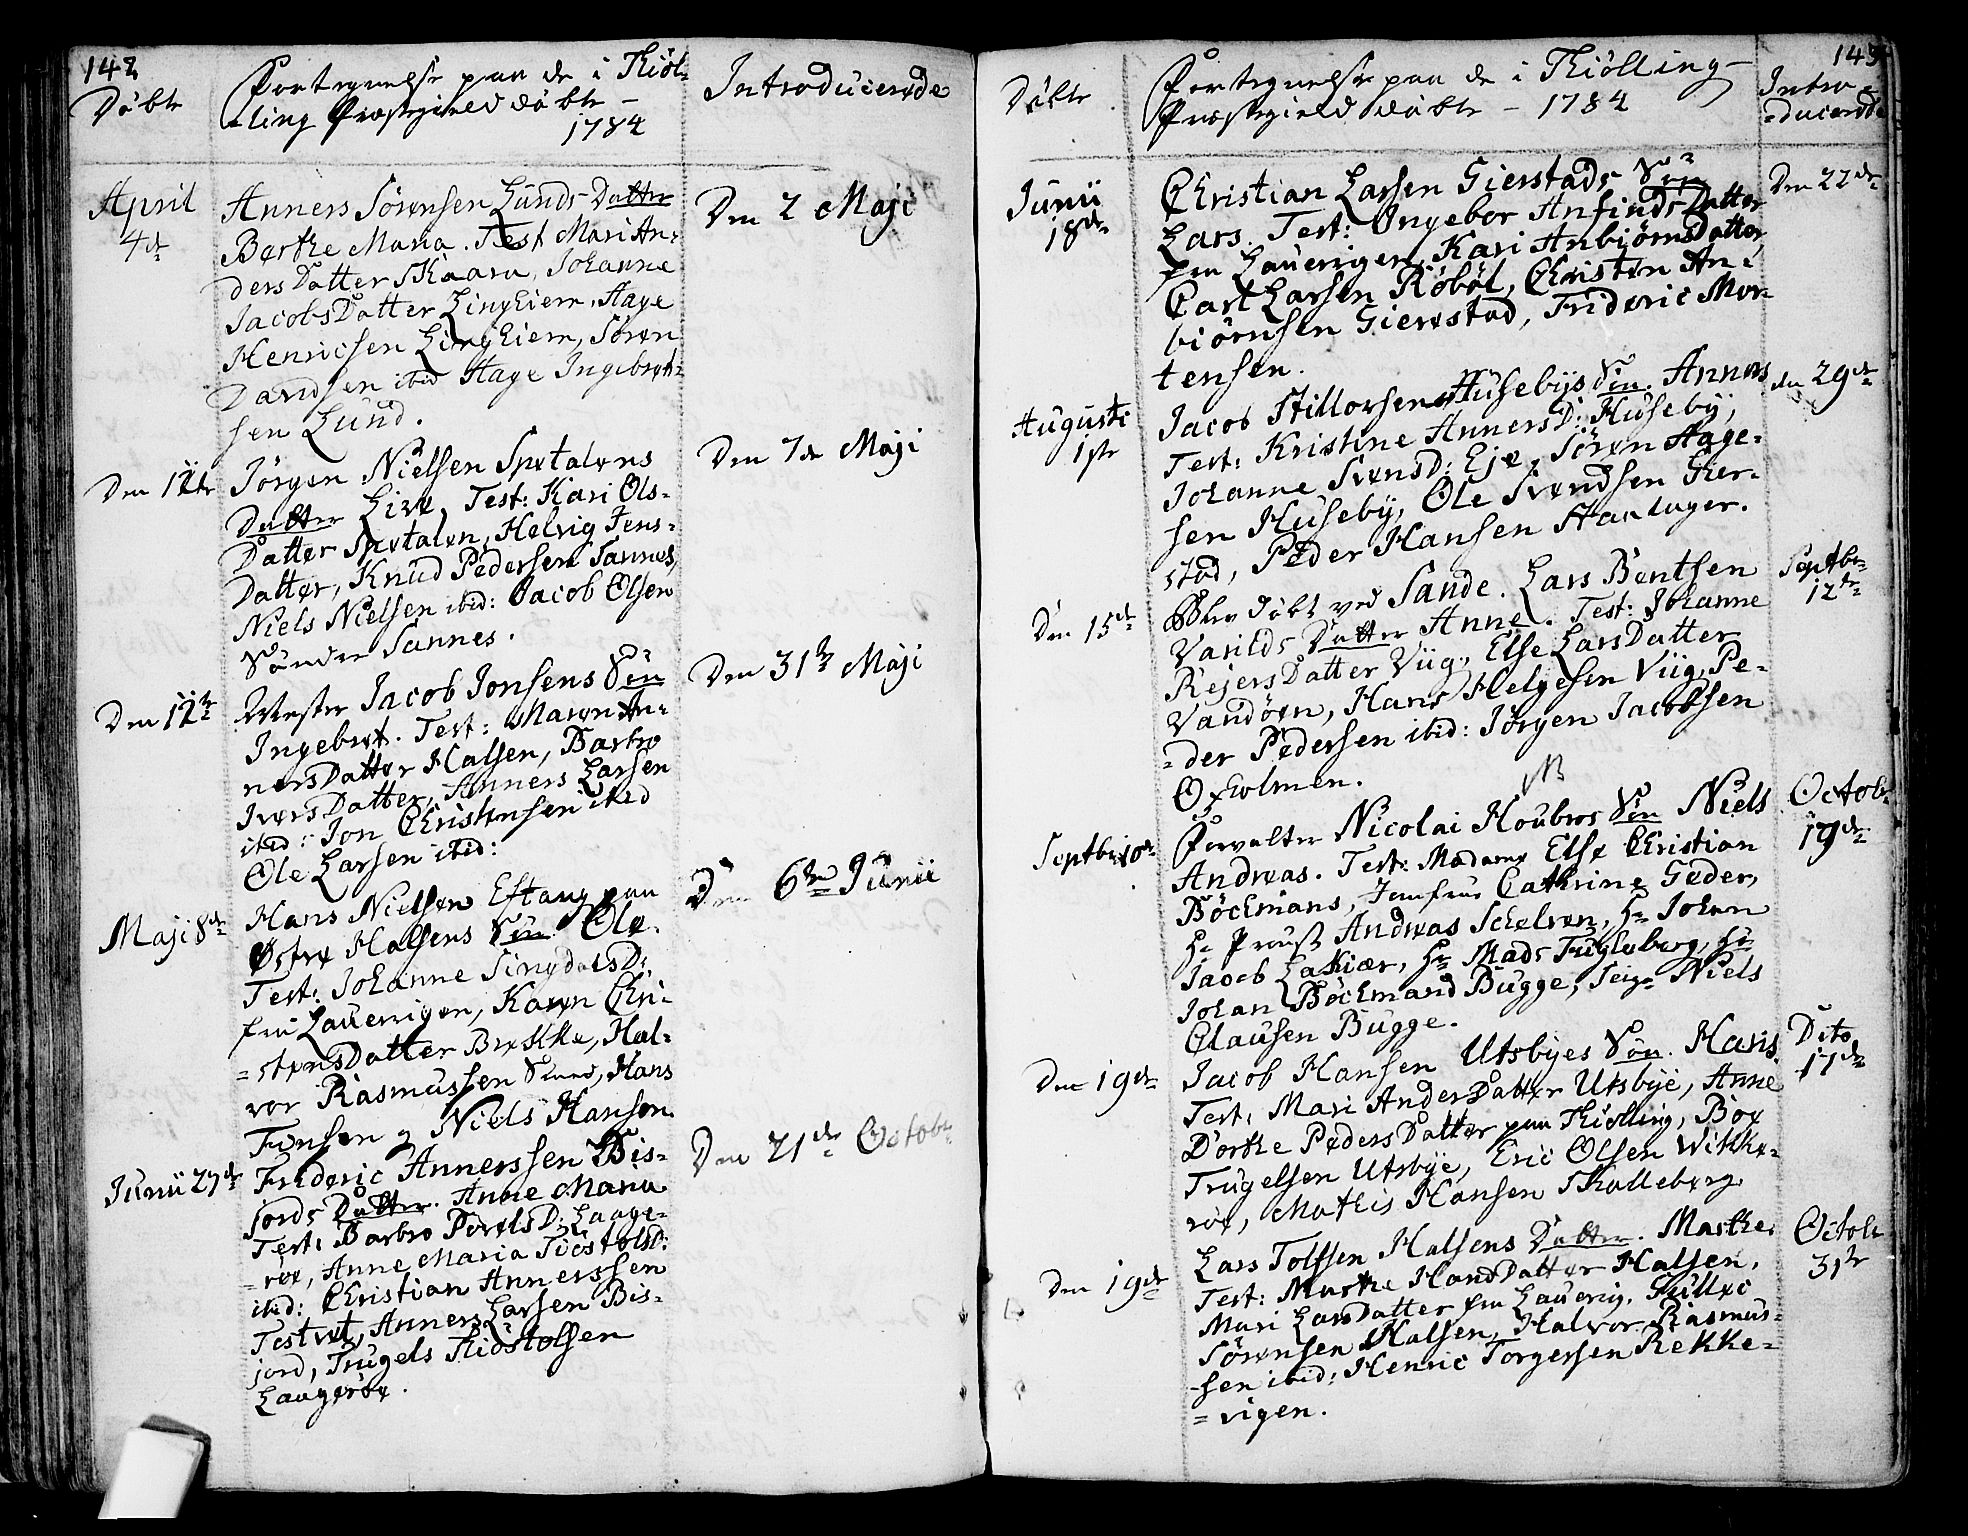 142
Döbte
Fortegnelse paa de i Kiöl-
-ling Præstegield döbte -
1784
Introducerede
April
4de
Anners Sörensen Lunds Datter
Berthe Maria. Test Mari An-
dersDatter Skaara, Johanne
JacobsDatter Lingheim, Hage
Henricsen Lingheim, Sören
Davidsen ibid Hage Ingebret-
sen Lund.
Den 2 Maji
Den 12te
Jörgen Nielsen Spetalens
Datter Live, Test: Kari Ols-
Datter Spetalen, Helvig Jens-
Datter, Knud Pedersen Sannes,
Niels Nielsen ibid: Jacob Olsen
Söndre Sannes.
Den 7de Maji
Den 12te
Mester Jacob Jonsens Sön
Ingebret. Test: Maren An-
nersDatter Halsen, Barbro
IversDatter, Anners Larsen
ibid: Jon Christensen ibid
Ole Larsen ibid:
Den 31te Maji
Maji 8de
Hans Nielsen Eftang paa
Østre Halsens Sön Ole.
Test: Johanne SingdalsD:
fra Lauerigen, Karen Chri-
=stensDatter Brekke, Hal-
vor Rasmussen, Hans
Fonsen og Niels Hansen
Den 6te Junii
Junii 27de
Frideric Annerssen Bis-
jords Datter. Anne Maria
Test: Barbro PovelsD: Lauge-
=röe, Anne Maria TiöstolsD:
ibid: Christian Annerssen
Testvet, Anners Larsen Bis-
jord, Trugels Tiöstolsen
Laugeröe.
Den 21de Octobr
143
Döbte
Fortegnelse paa de i Kiölling
Præstegield döbte - 1784
Intro-
=ducerede
Junii
18de
Christian Larsen Gierstads Sön
Lars. Test: Ingebor AnfindsDatter
fra Lauerigen, Kari AnbiörnsDatter
Carl Larsen Röböl, Christen An-
biörnsen Gierestad, Frideric Mor-
tensen.
Den 22de
Augusti
1ste
Jacob Hillorsen Husebys Sön. Anners
Test: Kristine AnnersD: Huseby,
Johanne SvensD: Eje, Sören Hage-
sen Huseby, Ole Svendsen Gier-
stad, Peder Hansen Haslager.
den 29de
Den 15de
Blev döbt ved Sande. Lars Bentsen
Varilds Datter Anne. Test: Johanne
RejersDatter Viig, Else LarsDatter
Vandöen, Hans Helgesen Viig, Pe-
=der Pedersen ibid: Jörgen Jacobsen
Oxholmen.
Septbr
12te
NB
Septbr 10de
Forvalter Nicolai Houbros Sön Niels
Andreas. Test: Madame Else Christian
Böckmans, Jomfrue Cathrine Feder,
Hr Proust Andreas Schelven, Hr Johan
Jacob Lakier, Hr Mads Fugleberg, Hr
Johan Böckmand Bugge, Seigr Niels
Clausen Bugge.
Octobr
19de
Den 19de
Jacob Hansen Utsbyes Sön. Hans
Test: Mari AndersDatter Utsbye, Anne
Dorthe PedersDatter paa Kiölling, Boe
Trugelsen Utsbye, Eric Olsen Wikke-
röe, Mathis Hansen Skalleberg.
Dito
17de
Den 19de
Lars Tolfsen Halsens Datter. Marthe.
Test: Marthe HansDatter Halsen,
Mari LarsDatter fra Lauerig. Gullec
Sörensen Halsen, Halvor Rasmus-
-sen ibid: Henric Torgersen Rekke-
=vigen.
Octobr
31te